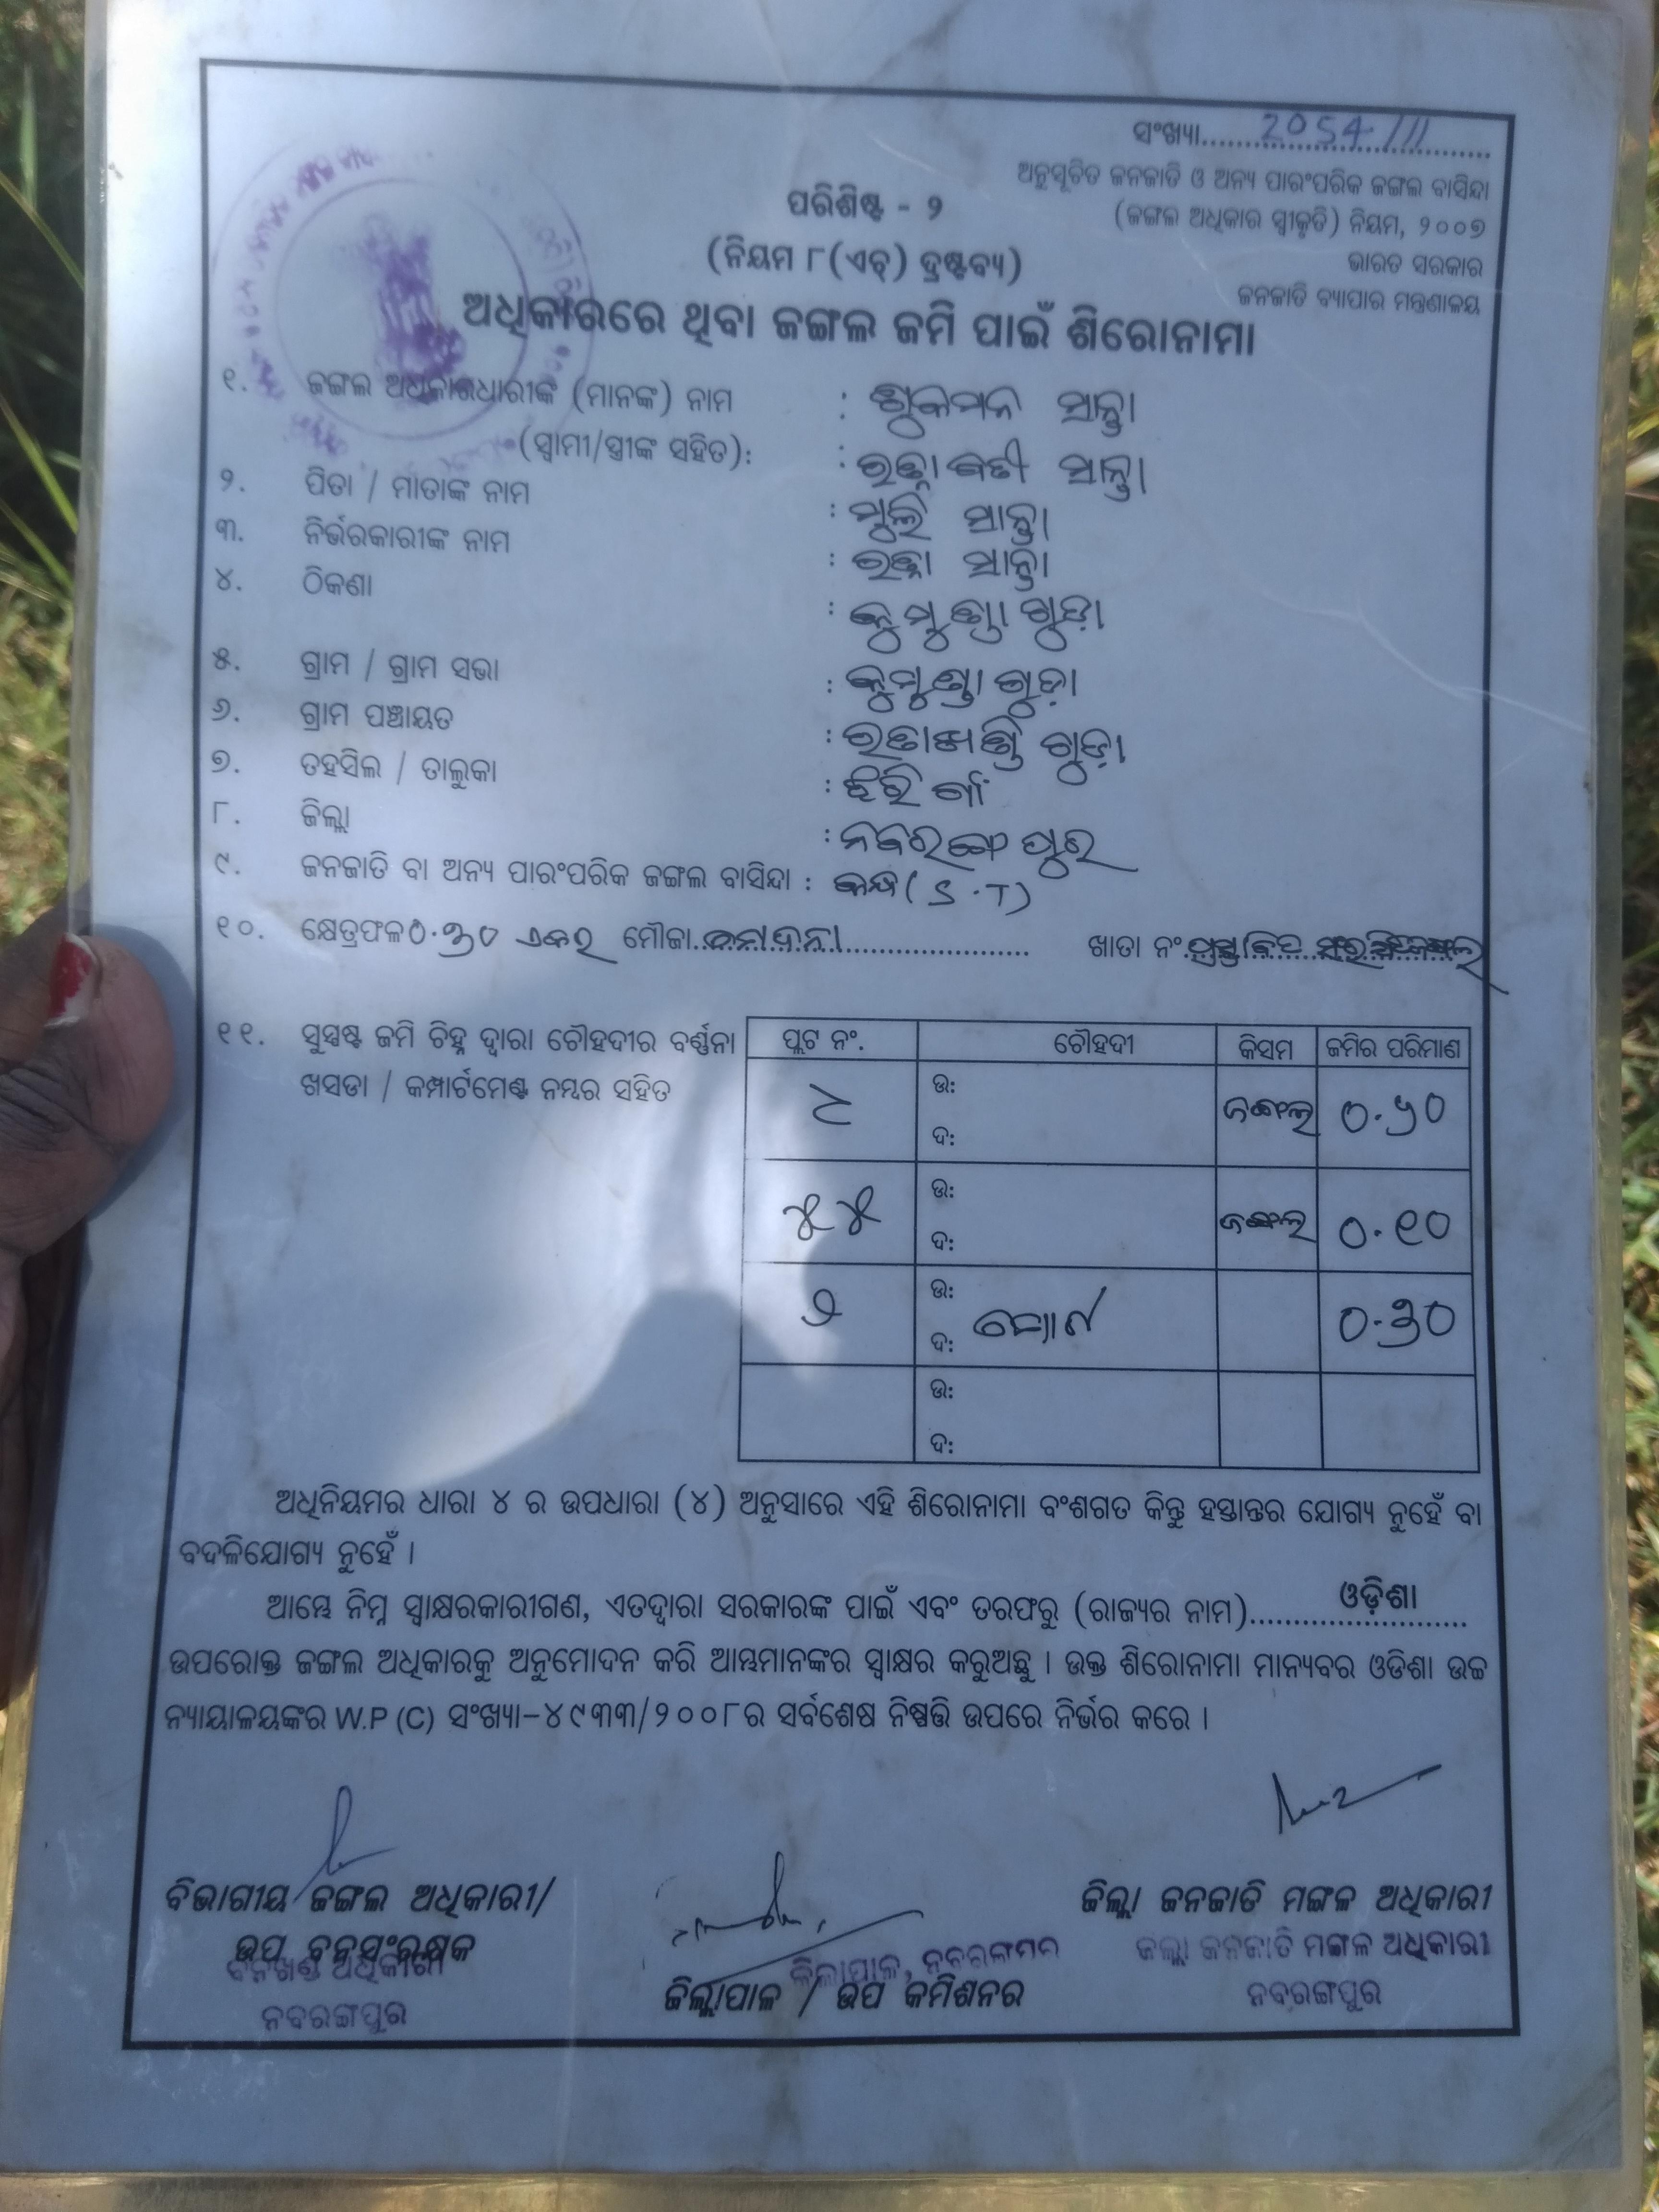 ସଂଖ୍ୟା 2054/111
ଅନୁସୂଚିତ ଜନଜାତି ଓ ଅନ୍ୟ ପାରଂପରିକ ଜଙ୍ଗଲ ବାସିନ୍ଦା
(ଜଙ୍ଗଲ ଅଧିକାର ସ୍ୱୀକୃତି) ନିୟମ, ୨୦୦୭
ଭାରତ ସରକାର
ଜନଜାତି ବ୍ୟାପାର ମନ୍ତ୍ରଣାଳୟ
ପରିଶିଷ୍ଟ - ୨
(ନିୟମ ୮(ଏଚ୍) ଦ୍ରଷ୍ଟବ୍ୟ)
ଅଧିକାରରେ ଥିବା ଜଙ୍ଗଲ ଜମି ପାଇଁ ଶିରୋନାମା
୧. ଜଙ୍ଗଲ ଅଧିକାରଧାରୀଙ୍କ (ମାନଙ୍କ) ନାମ : ଶୁକମନ ସାନ୍ତା
(ସ୍ୱାମୀ/ସ୍ତ୍ରୀଙ୍କ ସହିତ): : ସାନ୍ତା
୨. ପିତା / ମାତାଙ୍କ ନାମ : ସାନ୍ତା
୩. ନିର୍ଭରକାରୀଙ୍କ ନାମ : ସାନ୍ତା
୪. ଠିକଣା : କୁମୁଣ୍ଡା ଗୁଡ଼ା
୫. ଗ୍ରାମ / ଗ୍ରାମ ସଭା : କୁମୁଣ୍ଡା ଗୁଡ଼ା
୬. ଗ୍ରାମ ପଞ୍ଚାୟତ : ଗୁଡ଼ା
୭. ତହସିଲ / ତାଲୁକା : ଝରି ଗାଁ
୮. ଜିଲ୍ଲା : ନବରଙ୍ଗପୁର
୯. ଜନଜାତି ବା ଅନ୍ୟ ପାରଂପରିକ ଜଙ୍ଗଲ ବାସିନ୍ଦା : କନ୍ଧ (S.T)
୧୦. କ୍ଷେତ୍ରଫଳ ୦.୭୦ ଏକର ମୌଜା ଖାତା ନଂ ପ୍ରସ୍ତାବିତ ସଂରକ୍ଷିତ ଜଙ୍ଗଲ
୧୧. ସୁସ୍ପଷ୍ଟ ଜମି ଚିହ୍ନ ଦ୍ୱାରା ଚୌହଦୀର ବର୍ଣ୍ଣନା
ଖସଡା / କମ୍ପାର୍ଟମେଣ୍ଟ ନମ୍ବର ସହିତ
ପ୍ଲଟ ନଂ. ଚୌହଦୀ କିସମ ଜମିର ପରିମାଣ
ଉ: ଜଙ୍ଗଲ ୦.୬୦
ଦ:
୪୪ ଉ: ଜଙ୍ଗଲ ୦.୧୦
ଦ:
୨ ଉ: ୦.୭୦
ଦ: ମୋଟ
ଉ:
ଦ:
ଅଧିନିୟମର ଧାରା ୪ ର ଉପଧାରା (୪) ଅନୁସାରେ ଏହି ଶିରୋନାମା ବଂଶଗତ କିନ୍ତୁ ହସ୍ତାନ୍ତର ଯୋଗ୍ୟ ନୁହେଁ ବା
ବଦଳିଯୋଗ୍ୟ ନୁହେଁ ।
ଆମ୍ଭେ ନିମ୍ନ ସ୍ୱାକ୍ଷରକାରୀଗଣ, ଏତଦ୍ଦ୍ୱାରା ସରକାରଙ୍କ ପାଇଁ ଏବଂ ତରଫରୁ (ରାଜ୍ୟର ନାମ) ଓଡ଼ିଶା
ଉପରୋକ୍ତ ଜଙ୍ଗଲ ଅଧିକାରକୁ ଅନୁମୋଦନ କରି ଆମ୍ଭମାନଙ୍କର ସ୍ୱାକ୍ଷର କରୁଅଛୁ । ଉକ୍ତ ଶିରୋନାମା ମାନ୍ୟବର ଓଡିଶା ଉଚ୍ଚ
ନ୍ୟାୟାଳୟଙ୍କର W.P (C) ସଂଖ୍ୟା-୪୯୩୩/୨୦୦୮ର ସର୍ବଶେଷ ନିଷ୍ପତ୍ତି ଉପରେ ନିର୍ଭର କରେ ।
ବିଭାଗୀୟ ଜଙ୍ଗଲ ଅଧିକାରୀ/
ଉପ ବନସଂରକ୍ଷକ
ବନଖଣ୍ଡ ଅଧିକାରୀ
ନବରଙ୍ଗପୁର
ଜିଲାପାଳ, ନବରଙ୍ଗପୁର
ଜିଲ୍ଲାପାଳ / ଉପ କମିଶନର
ଜିଲ୍ଲା ଜନଜାତି ମଙ୍ଗଳ ଅଧିକାରୀ
ଜିଲ୍ଲା ଜନଜାତି ମଙ୍ଗଳ ଅଧିକାରୀ
ନବରଙ୍ଗପୁର